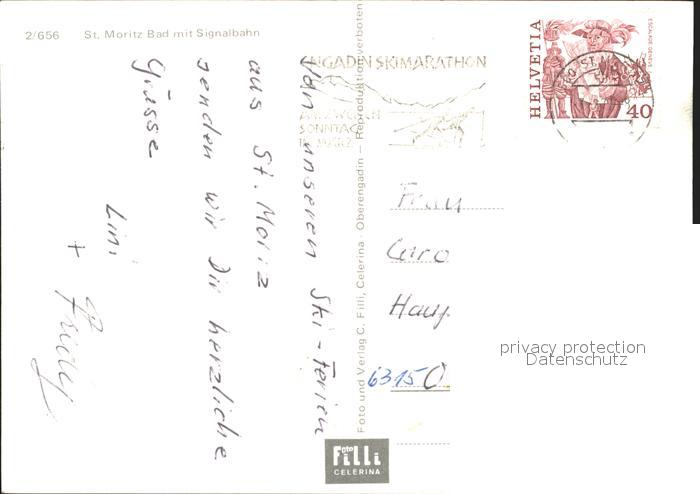 2/656 St. Moritz Bad mit Signalbahn
Von unseren Ski-Ferien
aus St. Moriz
senden wir Dir herzliche
Grüsse
Lini
+ Fridy
Foto und Verlag C. Filli, Celerina · Oberengadin – Reproduktion verboten
ENGADIN SKIMARATHON
SONNTAG
MÄRZ
HELVETIA
ESCALADE GENÈVE
40
Frau
Caro
6315
privacy protection
Datenschutz
Foto
Filli
CELERINA